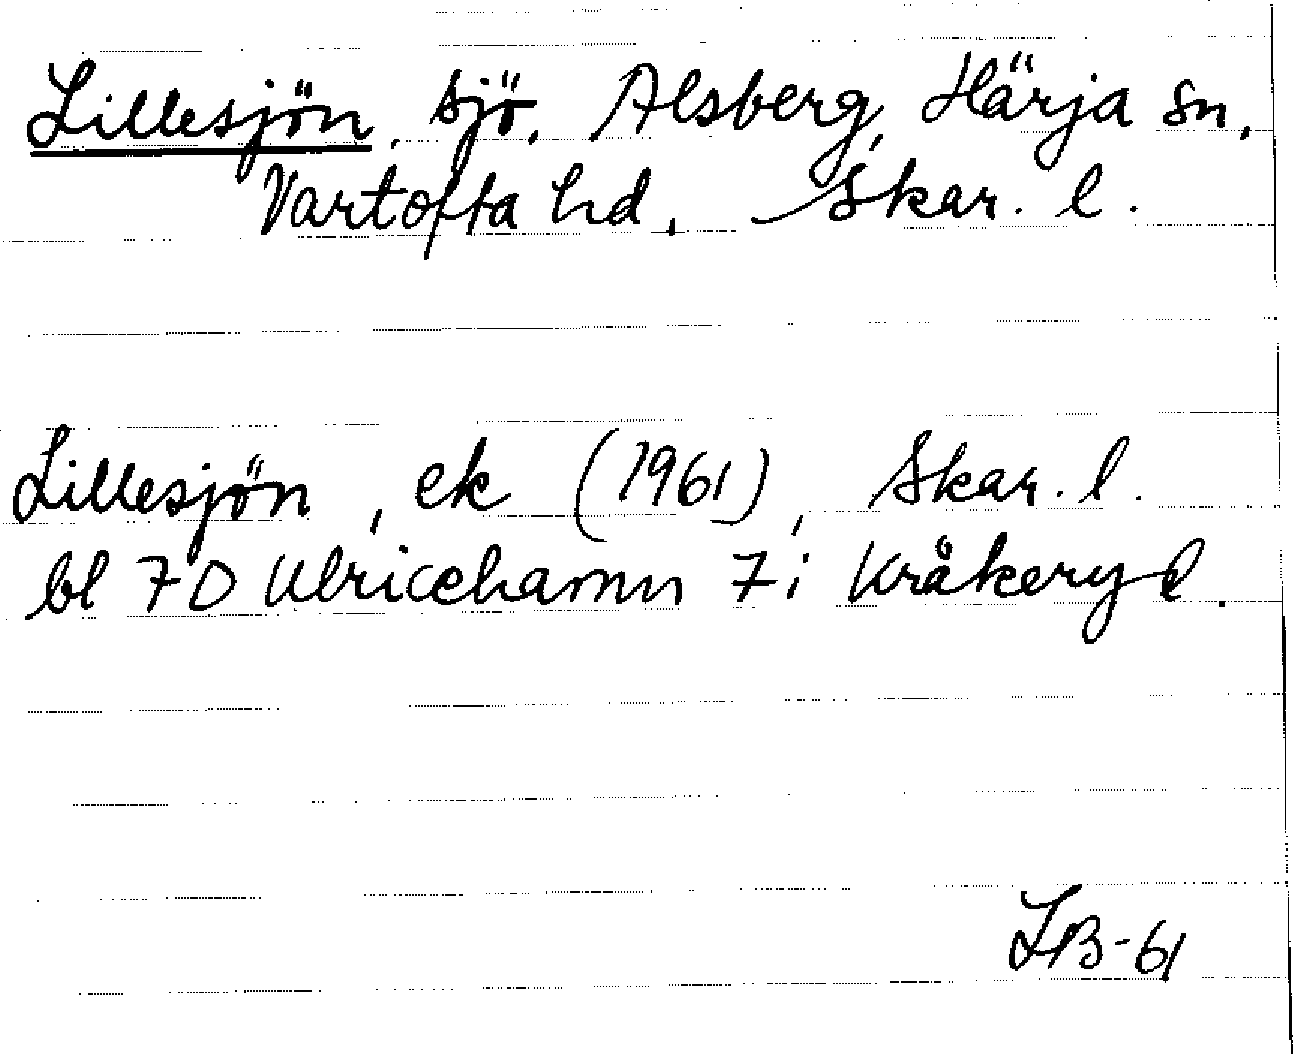 Lillesjön, sjö, Alsberg, Härja sn,
Vartofta hd, Skar. l.
Lillesjön, ek (1961), Skar. l.
bl 7D Ulricehamn 7i Kråkeryd.
LB-61